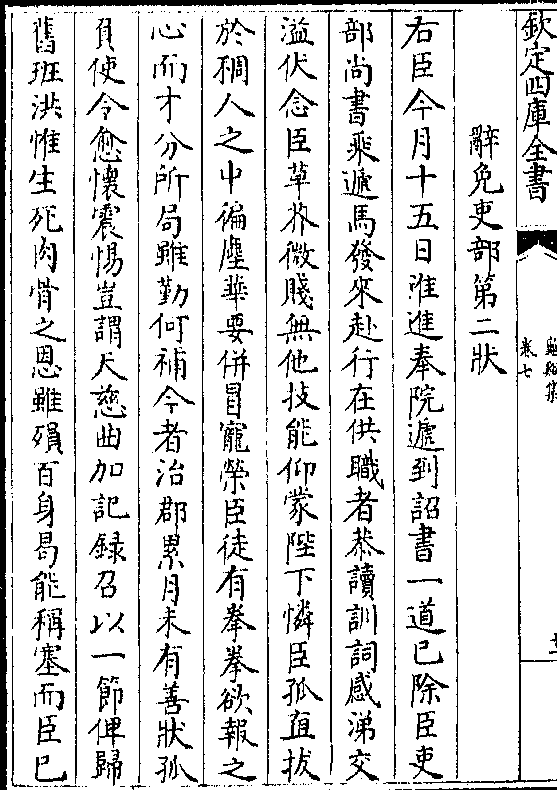 欽定四庫全書
卷七
辭免吏部第二狀
右臣今月十五日准進奉院遞到詔書一道已除臣吏
部尚書乘遞馬發來赴行在供職者恭讀訓詞感涕交
溢伏念臣草芥微賤無他技能仰蒙陛下憐臣孤直拔
於稠人之中徧塵華要併冒寵榮臣徒有拳拳欲報之
心而才分所局雖勤何補今者治郡累月未有善狀孤
負使令愈懷震惕豈謂天慈曲加記録召以一節俾歸
舊班洪惟生死肉骨之恩雖殞百身曷能稱塞而臣已